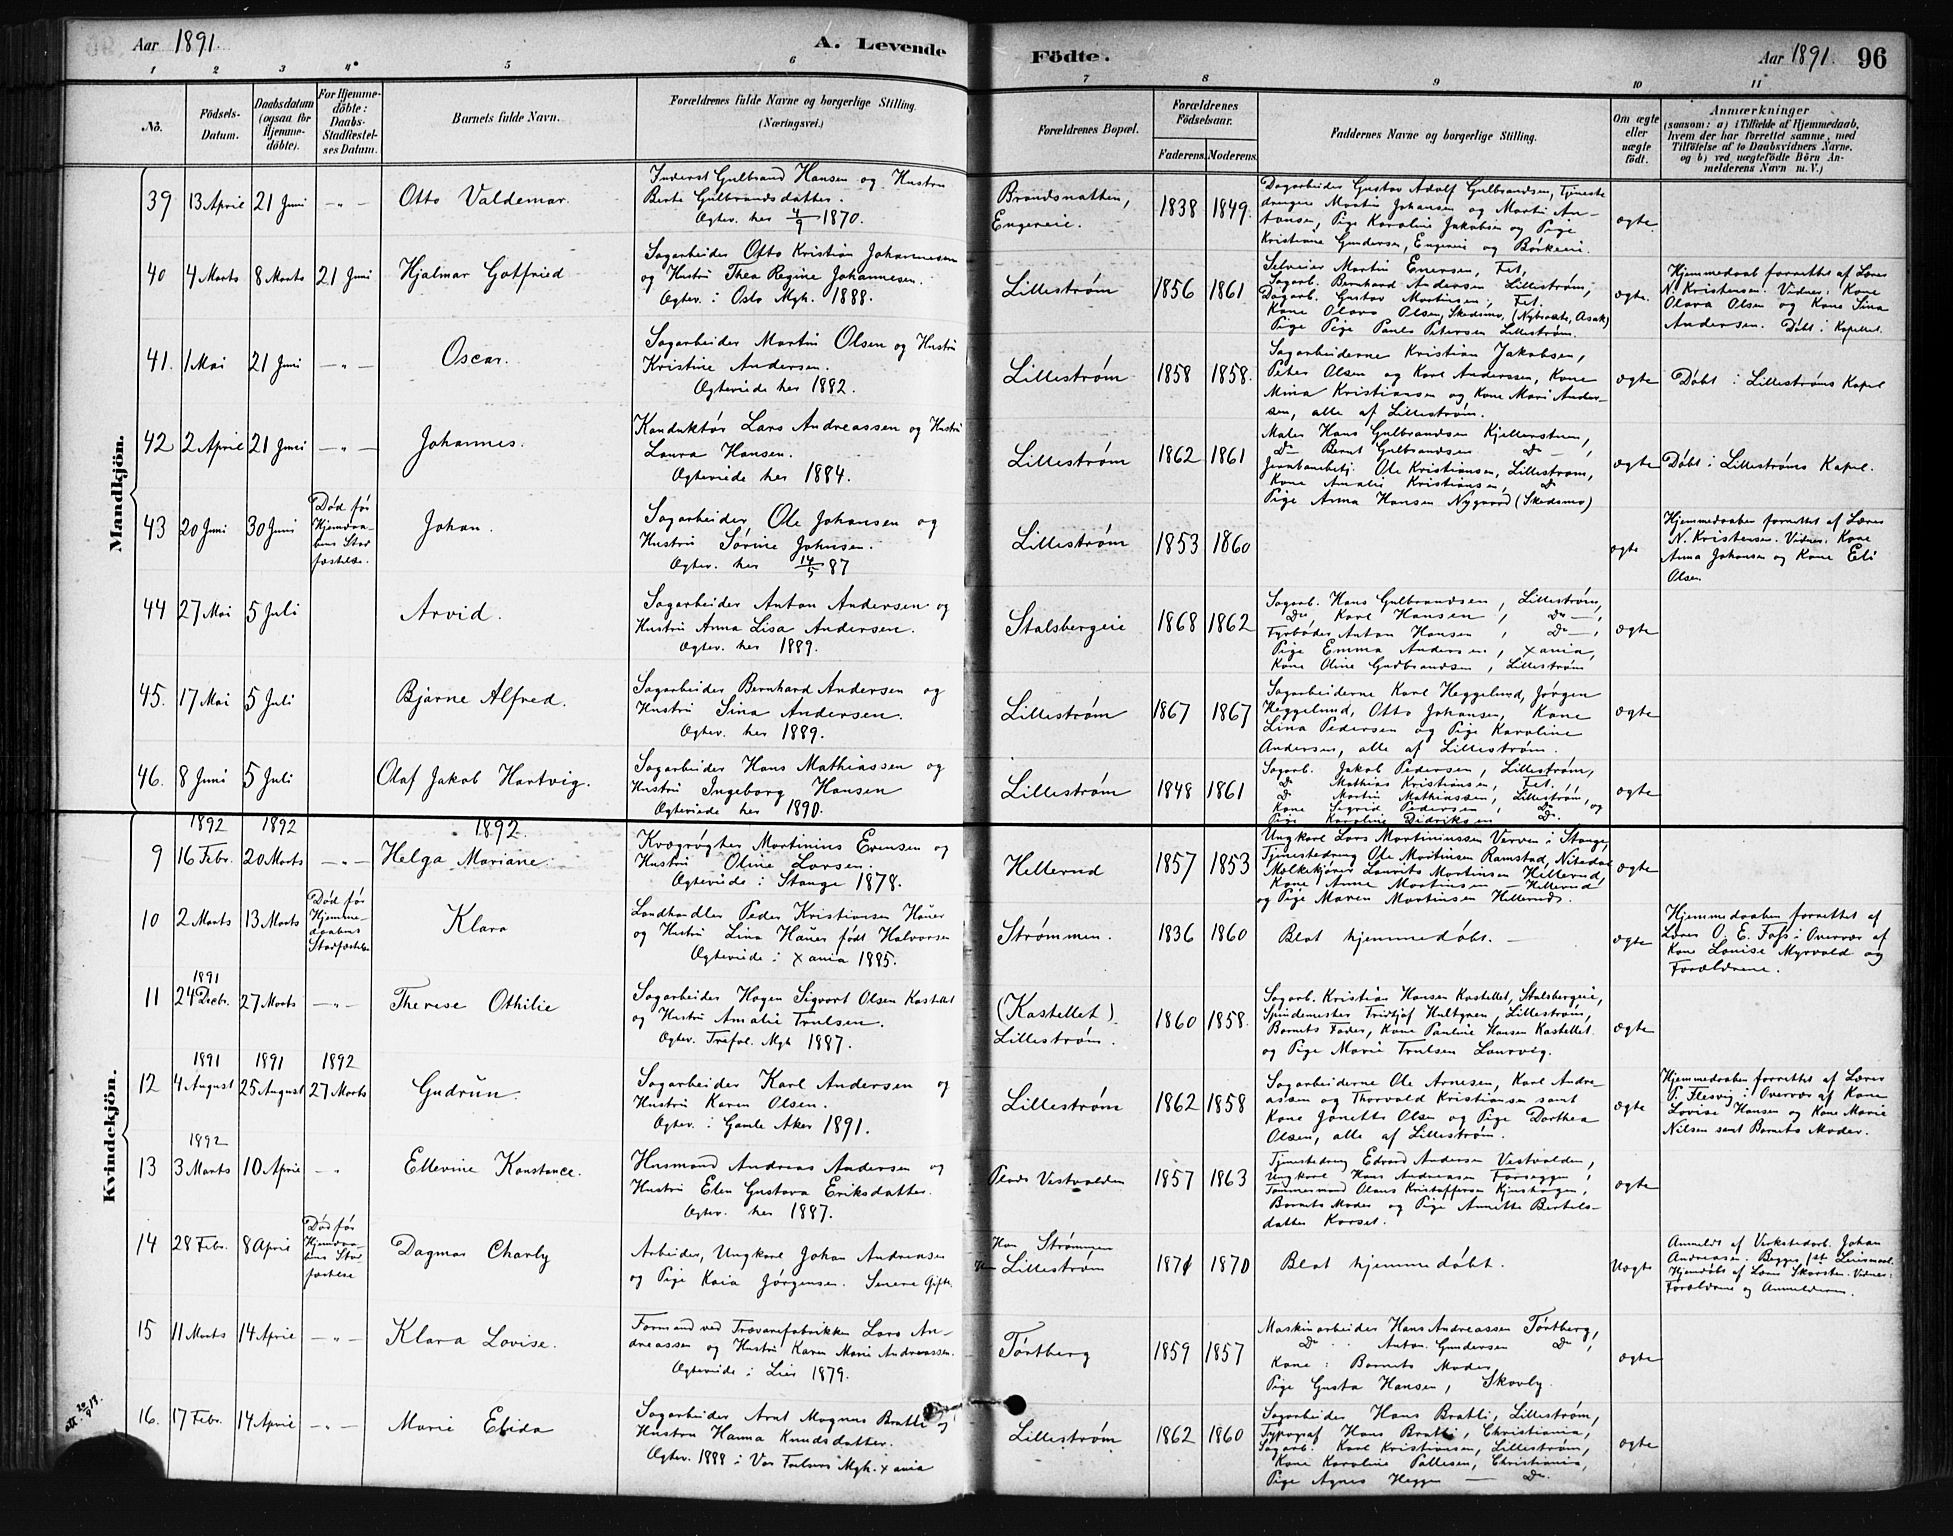 Aar 1891.
A. Levende
Födte.
Aar 1891.
96
1 2 3 4 5 6 7 8 9 10 11
No.
Födsels-Datum.
Daabsdatum (ogsaa for Hjemme-döbte).
For Hjemme-döbte: Daabs-Stadfæstel-ses Datum.
Barnets fulde Navn.
Forældrenes fulde Navne og borgerlige Stilling. (Næringsvei.)
Forældrenes Bopæl.
Forældrenes Födselsaar.
Faderens. Moderens.
Faddernes Navne og borgerlige Stilling.
Om ægte eller uægte födt.
Anmærkninger
(saasom: a) i Tilfælde af Hjemmedaab, hvem der har forrettet samme, med Tilföielse af to Daabsvidners Navne, og b) ved uægtefödte Börn An-melderens Navn m. V.)
Mandkjön.
39 13 April 21 Juni -"- Otto Valdemar.
Inderst Gulbrand Hansen og Hustru
Berte Gulbrandsdatter.
Ægtev. her 4/9 1870.
Engereie.
1838 1849.
Dagarbeider Gustav Adolf Gulbrandsen, Tjeneste
drengene Martin Johansen og
Pige Karoline Jakobsen og Pige
Kristiane Gundersen, Engereie og
ægte
40 4 Marts 8 Marts 21 Juni Hjalmar Gotfried
Sagarbeider Otto Kristian Johannesen
og Hustru Thea Regine Johannesen.
Ægtev. i Oslo Mgh. 1888.
Lillestrøm
1856 1861
Selveier Martin Enersen, Fet,
Sagarb. Bernhard Andersen Lillestrøm,
Dagarb. Gustav Mortinsen, Fet.
Kone Olava Olsen, Skedsmo,
Petersen Lillestrøm
ægte.
Hjemmedaab forrettet af Lærer
N. Kristensen. Vidner: Kone
Olava Olsen og Kone Lina
Andersen. Døbt i Kapellet.
41. 1 Mai 21 Juni -"- Oscar.
Sagarbeider Martin Olsen og Hustru
Kristine Andersen.
Ægteviede her 1882.
Lillestrøm
1858 1858.
Sagarbeiderne Kristian Jakobsen,
Peter Olsen og Karl Anderssen, Kone
Mina Kristiansen og Kone Mari Ander-
sen, alle af Lillestrøm.
ægte
Døbt i Lillestrøms Kapel
42 2 April 21 Juni -"- Johannes.
Konduktør Lars Andreassen og Hustru
Laura Hansen.
Ægteviede her 1884.
Lillestrøm
1862 1861
Maler Hans Gulbrandsen
Do Bernt Gulbrandsen Do
Ole Kristiansen, Lillestrøm,
Kone Amalie Kristiansen, Do
Pige Anna Hansen Nygaard (Skedsmo)
ægte
Døbt i Lillestrøms Kapel.
43 20 Juni 30 Juni
Død før
Johan.
Sagarbeider Ole Johansen og
Hustru Sørine Johnsen.
Ægtev. her 14/5 87
Lillestrøm
1853 1860
ægte
Hjemmedaaben forrettet af Lærer
N. Kristensen. Vidner: Kone
Anna Johansen og Kone Eli
Olsen
44 27 Mai 5 Juli Arvid.
Sagarbeider Anton Andersen og
Hustru Anna Lisa Andersen.
Ægtev. her 1889.
Stalsbergeie
1868 1862
Sagarb. Hans Gulbrandsen, Lillestrøm,
Do Karl Hansen, Do
Fyrbøder Anton Hansen, Do
Pige Emma Andersen, Xania,
Kone Oline Gudbrandsen, Lillestrøm
ægte
45. 17 Mai 5 Juli Bjarne Alfred.
Sagarbeider Bernhard Andersen og
Hustru Lina Andersen.
Ægtev. her 1889.
Lillestrøm
1867 1867
Sagarbeiderne Karl Heggelund, Jørgen
Heggelund, Otto Johansen, Kone
Lina Pedersen og Pige Karoline
Andersen, alle af Lillestrøm.
ægte
46. 8 Juni 5 Juli Olaf Jakob Hartvig.
Sagarbeider Hans Mathiassen og
Hustru Ingeborg Hansen
Ægteviede her 1890.
Lillestrøm
1848 1861
Sagarb. Jakob Pedersen, Lillestrøm,
Do Mathias Kristiansen, Fet.
Do Martin Mathiassen, Lillestrøm,
Kone Sigrid Pedersen, Do og
Pige Karoline Didriksen Do.
ægte
Kvindekjön.
1892 1892 1892.
9 16 Febr. 20 Marts -"- Helga Mariane.
Kvægrøgter Martinius Evensen og
Hustru Oline Larsen.
Ægteviede i Stange 1878.
Hellerud
1857 1853
Ungkarl Lars Martiniussen Verven i Stange,
Tjenestedreng Ole Martinsen Ramstad, Nitedal
Melkekjører Laurits Martinsen Hellerud,
Kone Anne Martinsen - Hellerud
og Pige Maren Martinsen Hellerud.
ægte
10 2 Marts 13 Marts
Død før
Hjemme-
daabens
Stadfæstelse
Klara
Landhandler Peder Kristiansen Hauer
og Hustru Lina Hauer født Halvorsen
Ægteviede i Xania 1885.
Strømmen.
1836 1860
Blot hjemmedøbt.
ægte
Hjemmedaaben forrettet af
Lærer O. E. Foss i Overvær af
Kone Louise Myrvold og
Forældrene.
1891
11 24 Decbr. 27 Marts -"- Therese Othilie
Sagarbeider Hagen Sigvart Olsen Kastellet
og Hustru Amalie Trulsen.
Ægtev. Trefol. Mgh 1887.
(Kastellet)
Lillestrøm.
1860 1858.
Sagarb. Kristian Hansen Kastellet, Stalsbergeie,
Fridtjof Hultgren, Lillestrøm,
Barnets Fader, Kone Pauline Hansen Kastellet
og Pige Marie Trulsen Laurvig.
ægte
1891 1891 1892
12 4 August 25 August 27 Marts Gudrun.
Sagarbeider Karl Andersen og
Hustru Karen Olsen.
Ægtev. i Gamle Aker 1891.
Lillestrøm
1862 1858
Sagarbeiderne Ole Arnesen, Karl Andre-
assen og Thorvald Kristiansen samt
Kone Janette Olsen og Pige Dorthea
Olsen, alle af Lillestrøm.
ægte
Hjemmedaaben forrettet af Lærer
P. Flesvig i Overvær af Kone
Lovise Hansen og Kone Marie
Nilsen samt Barnets Moder.
1892
13 3 Marts 10 April -"- Ellevine Konstance.
Husmand Andreas Andersen og
Hustru Elen Gustava Eriksdatter.
Ægtev. her 1887.
Plads Vestvolden
1857 1863
Tjenestedreng Edvard Andersen Vestvolden,
Ungkarl Hans Andreasen
Tømmermand Olaus Kristoffersen
Barnets Moder og Pige Annette Bertels-
datter Korset.
ægte
14 28 Febr. 8 April
Død før
Dagmar Charly
Arbeider, Ungkarl Johan Andreasen
og Pige Kaia Jørgensen. Senere gifte
Han Strømmen
Hun Lillestrøm
1871 1870
Blot hjemmedøbt.
Uægte
Anmeldt af Verkstedarb. Johan
Andreasen. Begges 1ste Leiermaal.
Hjemdøbt af Skarsten. Vidner:
Forældrene og Anmelderen.
15 11 Marts 14 April -"- Klara Lovise.
Formand ved Trævarefabrikken Lars An-
dreassen og Hustru Karen Marie Andreassen.
Ægteviede i Lier 1879.
Tørtberg
1859 1857
Maskinarbeider Hans Andreassen Tørtberg,
Do Anton Gundersen Do,
Kone: Barnets Moder,
Pige Gusta Hansen, Skovly
ægte
16. 17 Febr. 14 April -"- Marie Elida
Sagarbeider Arnt Magnus Bratli og
Hustru Hanna Knudsdatter.
Ægtev. 1888 i Vor Frelsers Mgh. Xania
Lillestrøm
1862 1860
Sagarbeider Hans Bratli, Lillestrøm,
Typograf Hans Bratli, Christiania,
Sagarb. Karl Kristiansen, Lillestrøm,
Kone Karoline Pallesen, Christiania,
Pige Agnes Heggen - Do.
ægte